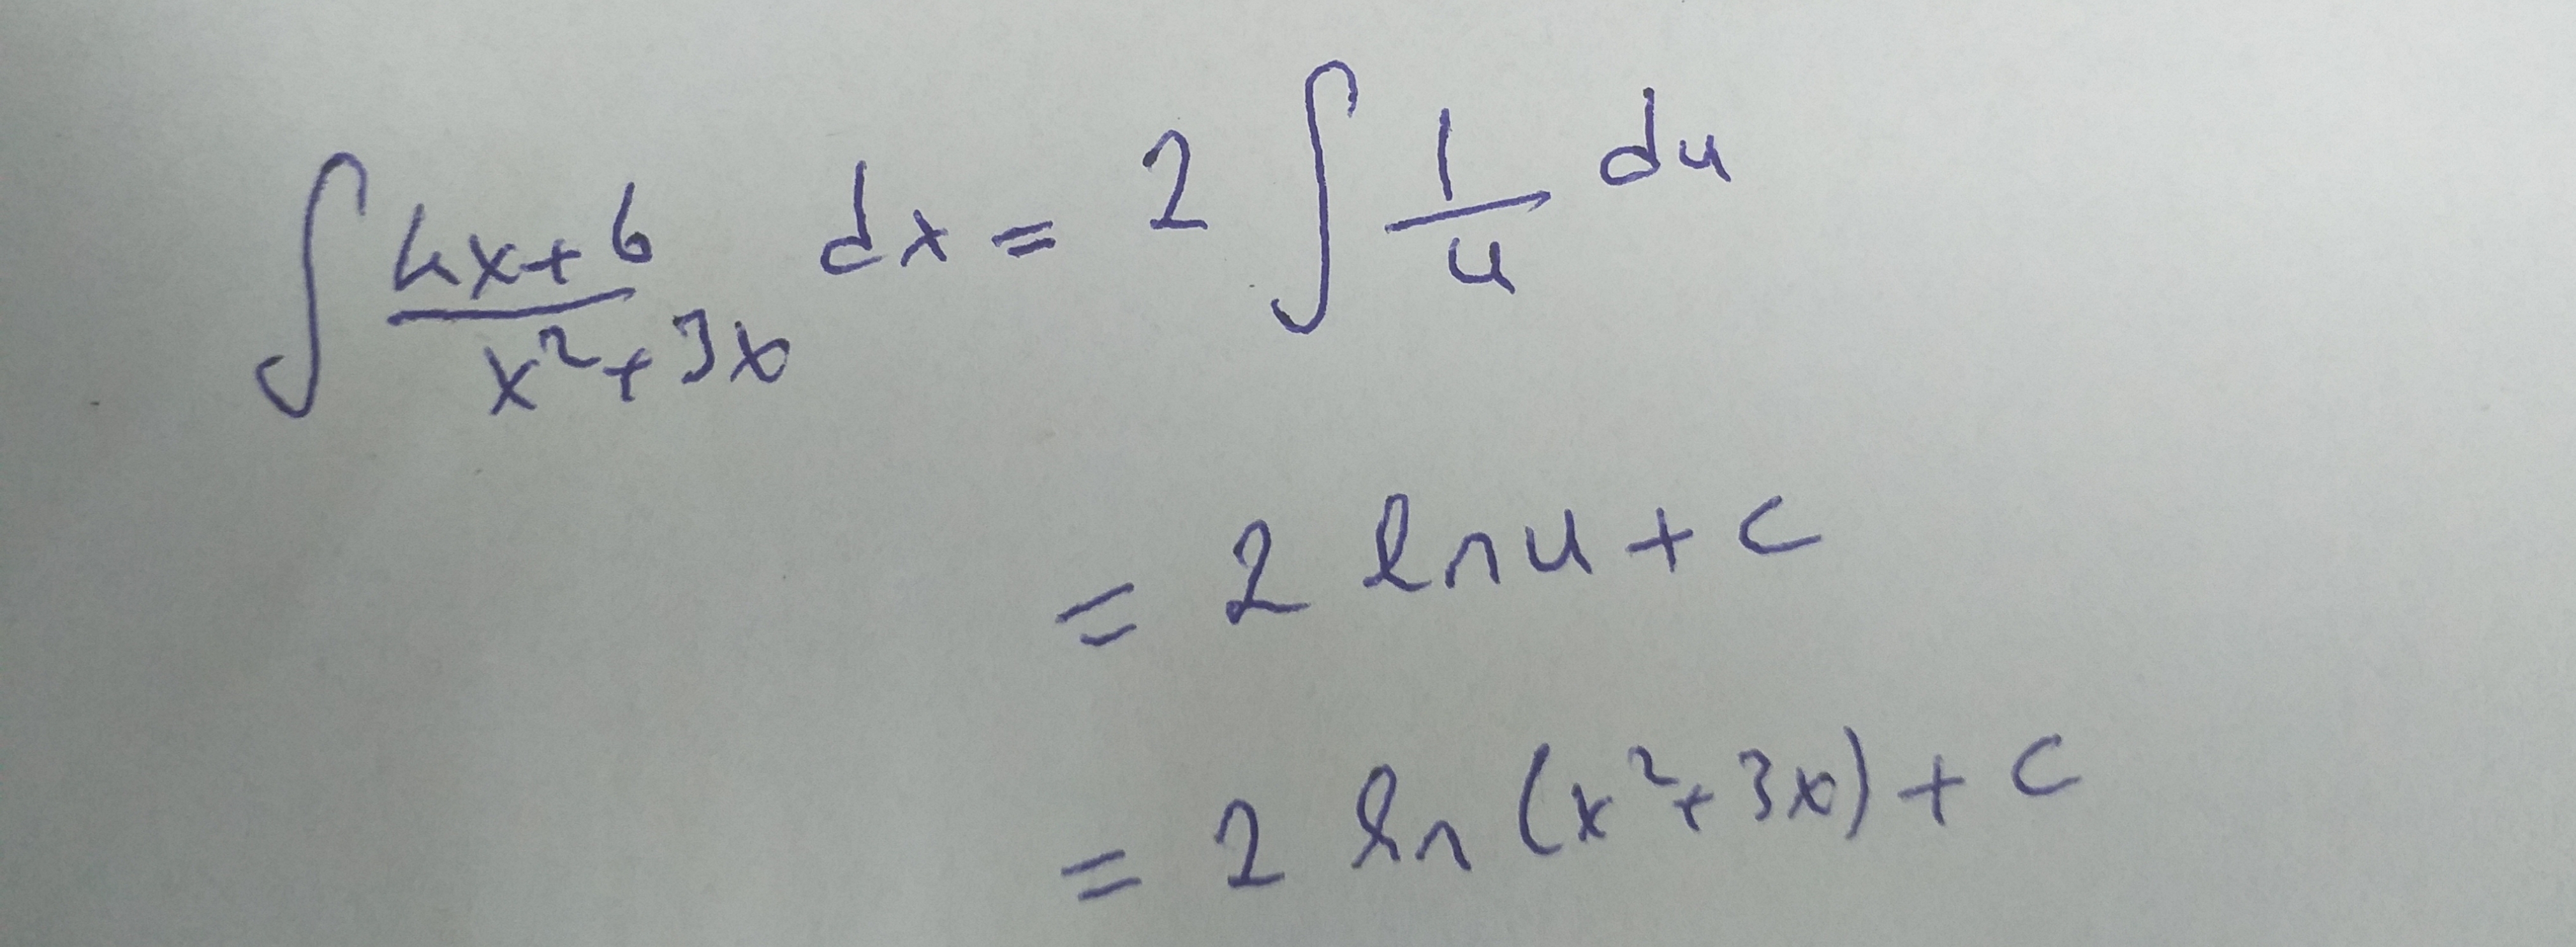 ∫ (4x+6)/(x²+3x) dx = 2 ∫ 1/u du
= 2 ln u + c
= 2 ln (x²+3x) + c